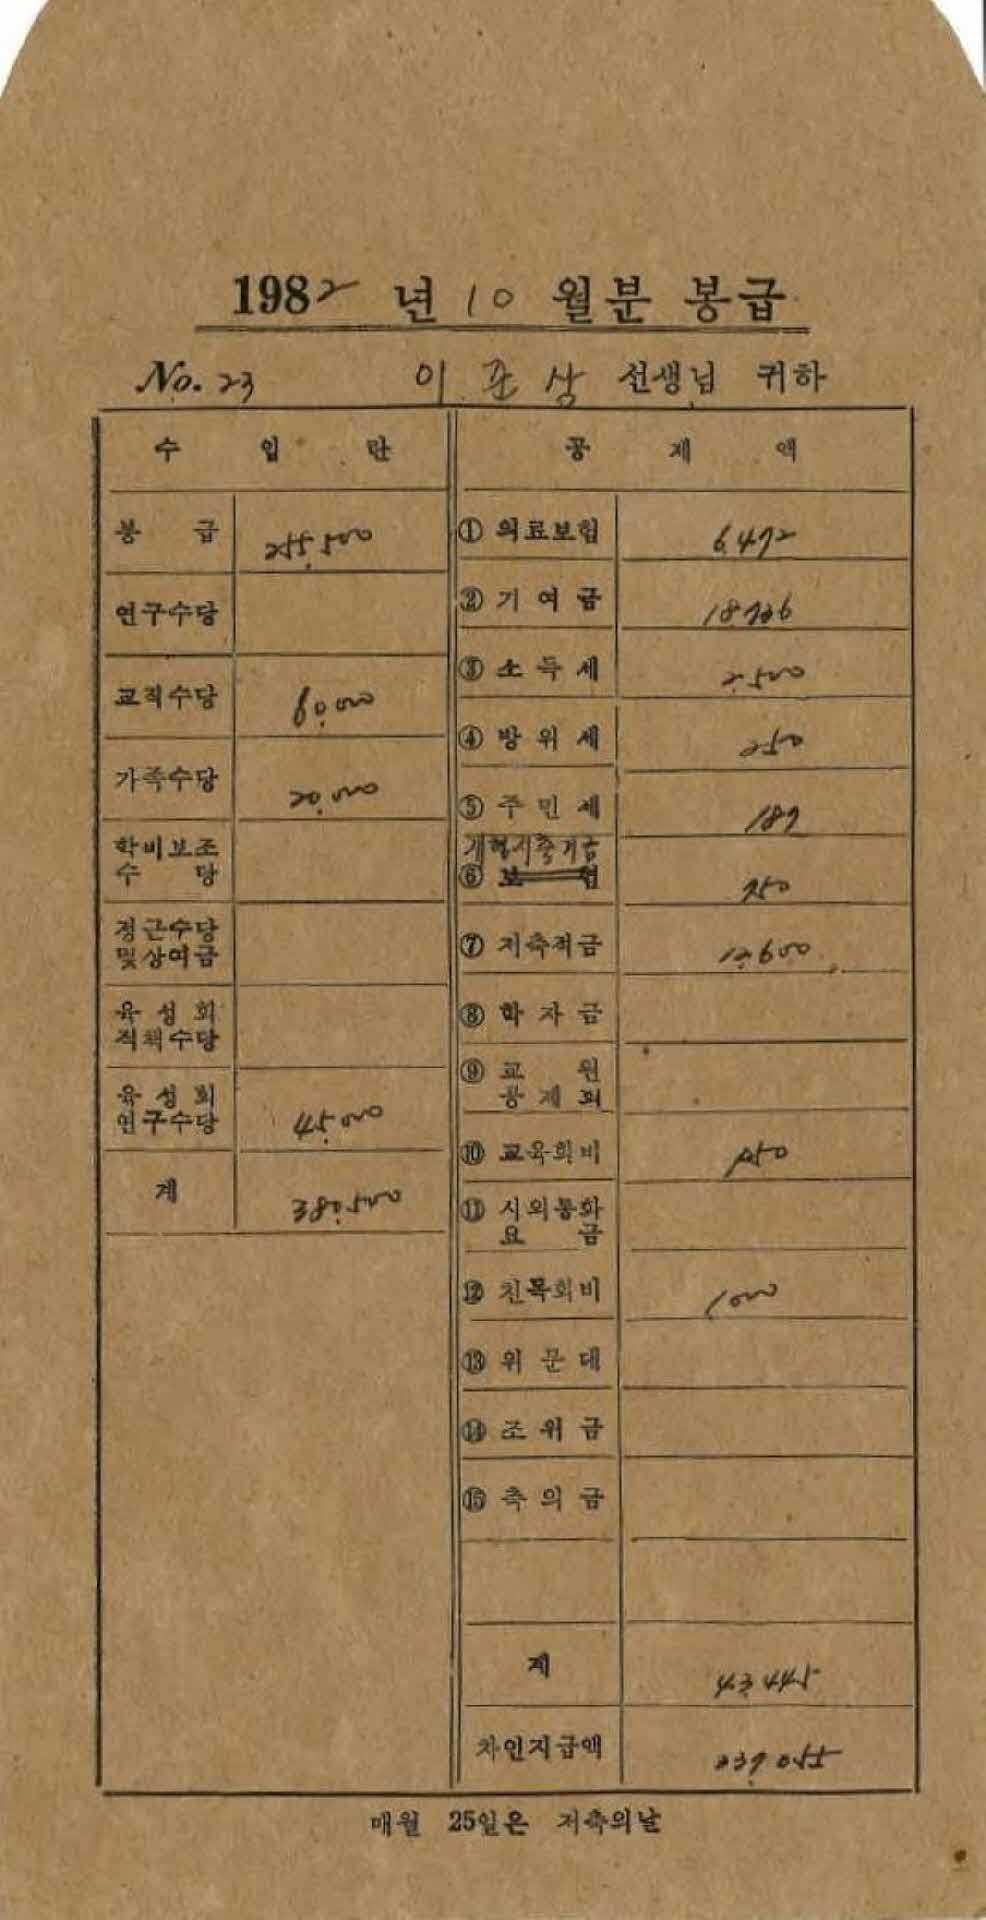 1982 년 10 월분 봉급
No. 23 이 준 상 선생님 귀하
수 입 란
봉 급 255,500
연구수당
교직수당 60,000
가족수당 20,000
학비보조
수 당
정근수당
및상여금
육 성 회
직책수당
육 성 회
연구수당 45,000
계 380,500
공 제 액
① 의료보험 6,472
② 기 여 금 18,736
③ 소 득 세 2,500
④ 방 위 세 250
⑤ 주 민 세 187
저축기금
⑥ 보 험 750
⑦ 저축적금 12,600
⑧ 학 자 금
⑨ 교 원
공 제 회
⑩ 교육회비 950
⑪ 시외통화
요 금
⑫ 친목회비 1,000
⑬ 위 문 대
⑭ 조 위 금
⑮ 축 의 금
계 43,445
차인지급액 337,055
매월 25일은 저축의날